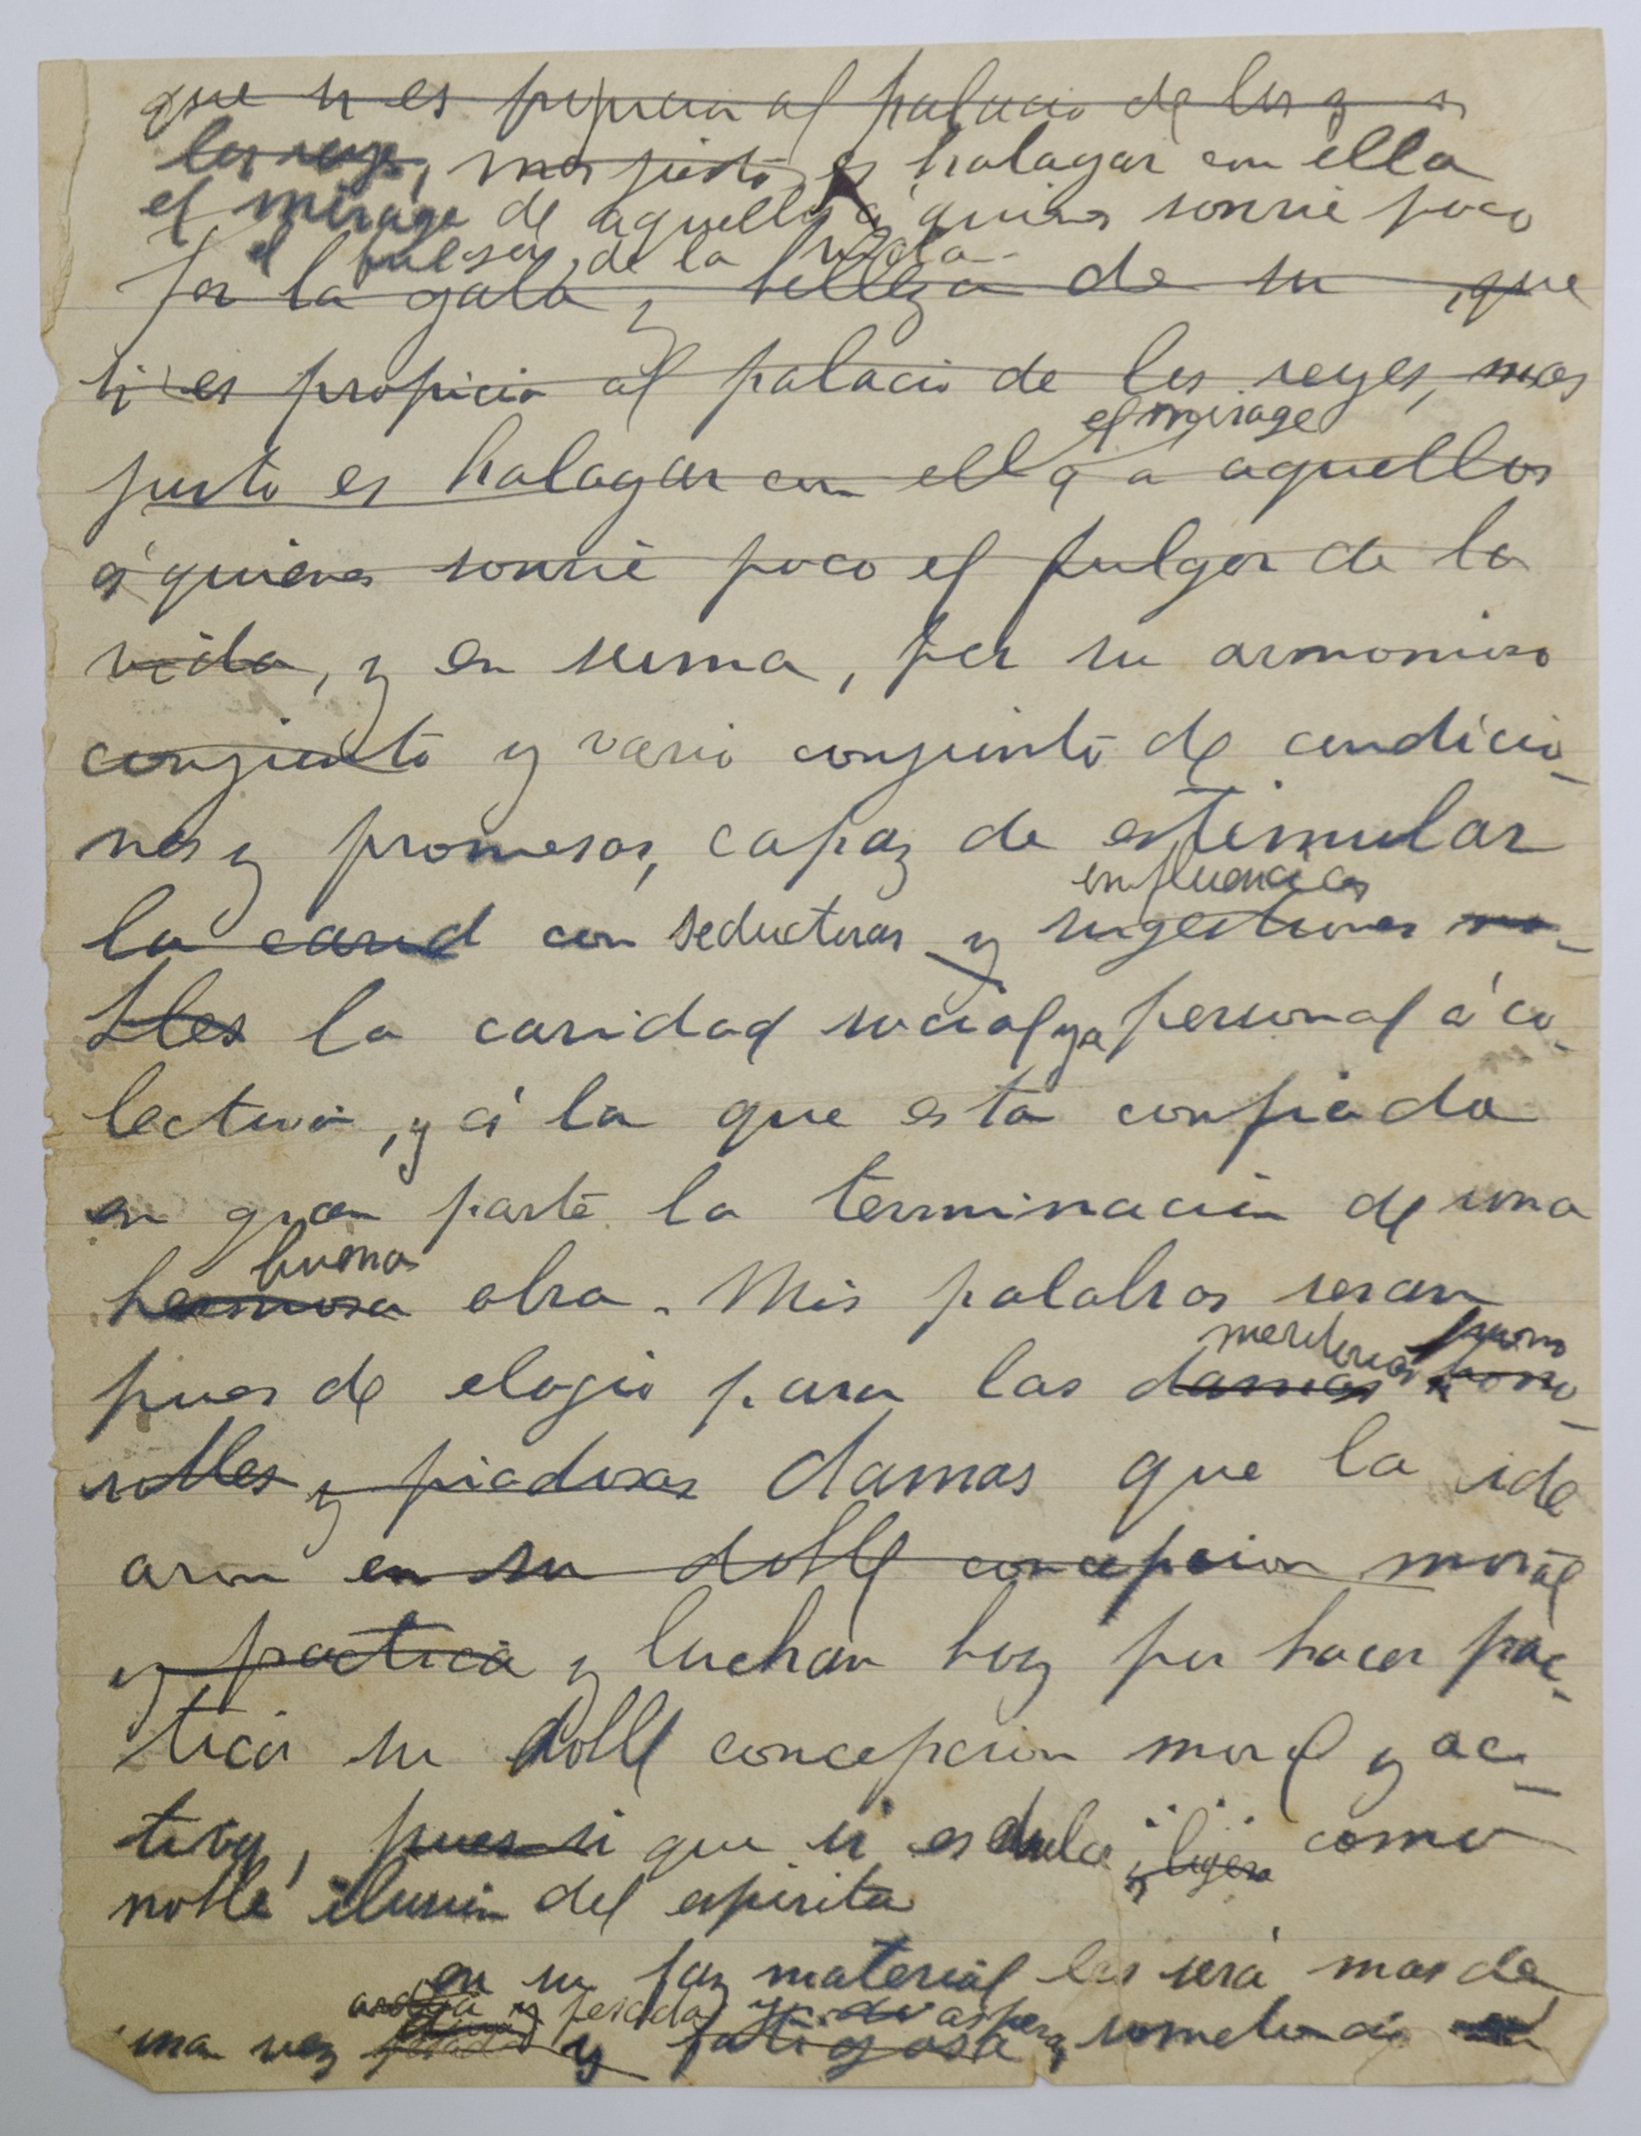 que si es propicia al palacio de los
los reyes, mas justo es halagar con ella
el mirage de aquellos á quienes sonrie poco
el fulgor de la vida
por la gala y belleza de su , que
si es propicia al palacio de los reyes, mas
el mirage
justo es halagar con ella a aquellos
á quienes sonrie poco el fulgor de la
vida, y en suma, por su armonioso
conjunto y vario conjunto de condicio-
nes y promesas, capaz de estimular
influencias
la carid con seductoras y sugestiones no-
bles la caridad social ya personal ó co-
lectiva, y á la que esta confiada
en gran parte la terminacion de una
buena
hermosa obra. Mis palabras seran
meritorias
pues de elogio para las damas hono-
rables y piadosas damas que la ide
aron en su doble concepcion moral
y practica y luchan hoy por hacer prac-
tica su doble concepcion moral y ac-
tiva, pues si que si es dulce y ligera como
noble ilusion del espiritu
en su faz material les será mas de
ardua y pesada y aspera
una vez y fatigosa